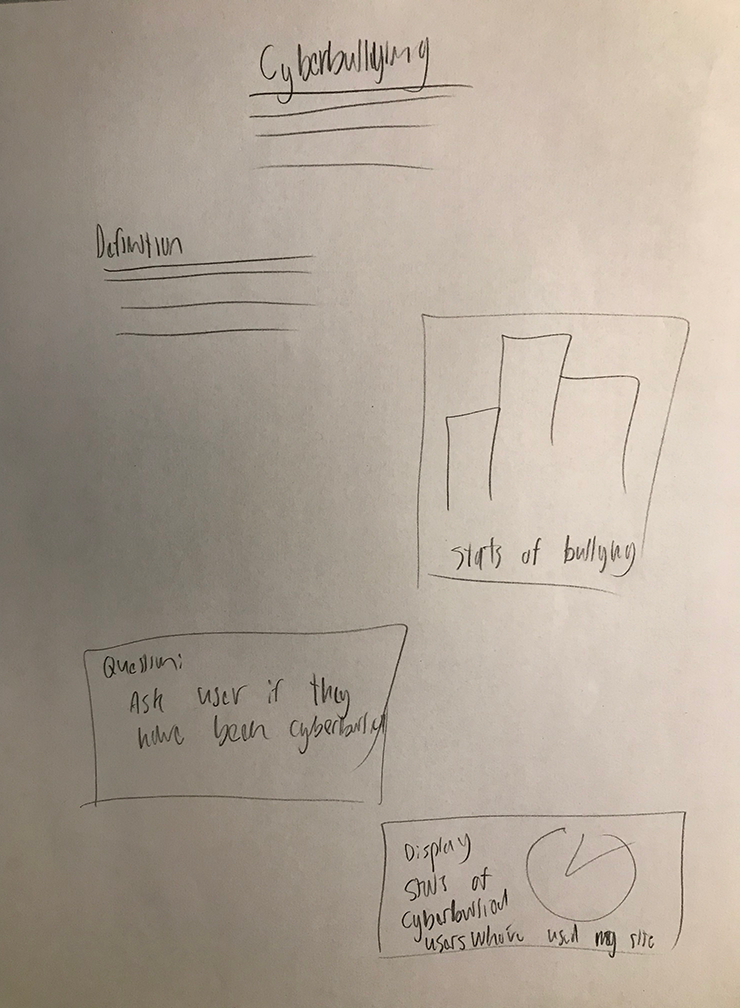 Cyberbullying
Definition
Stats of bullying
Question:
Ask user if they
have been cyberbullied
Display
stats of
cyberbullied
users who've used my site